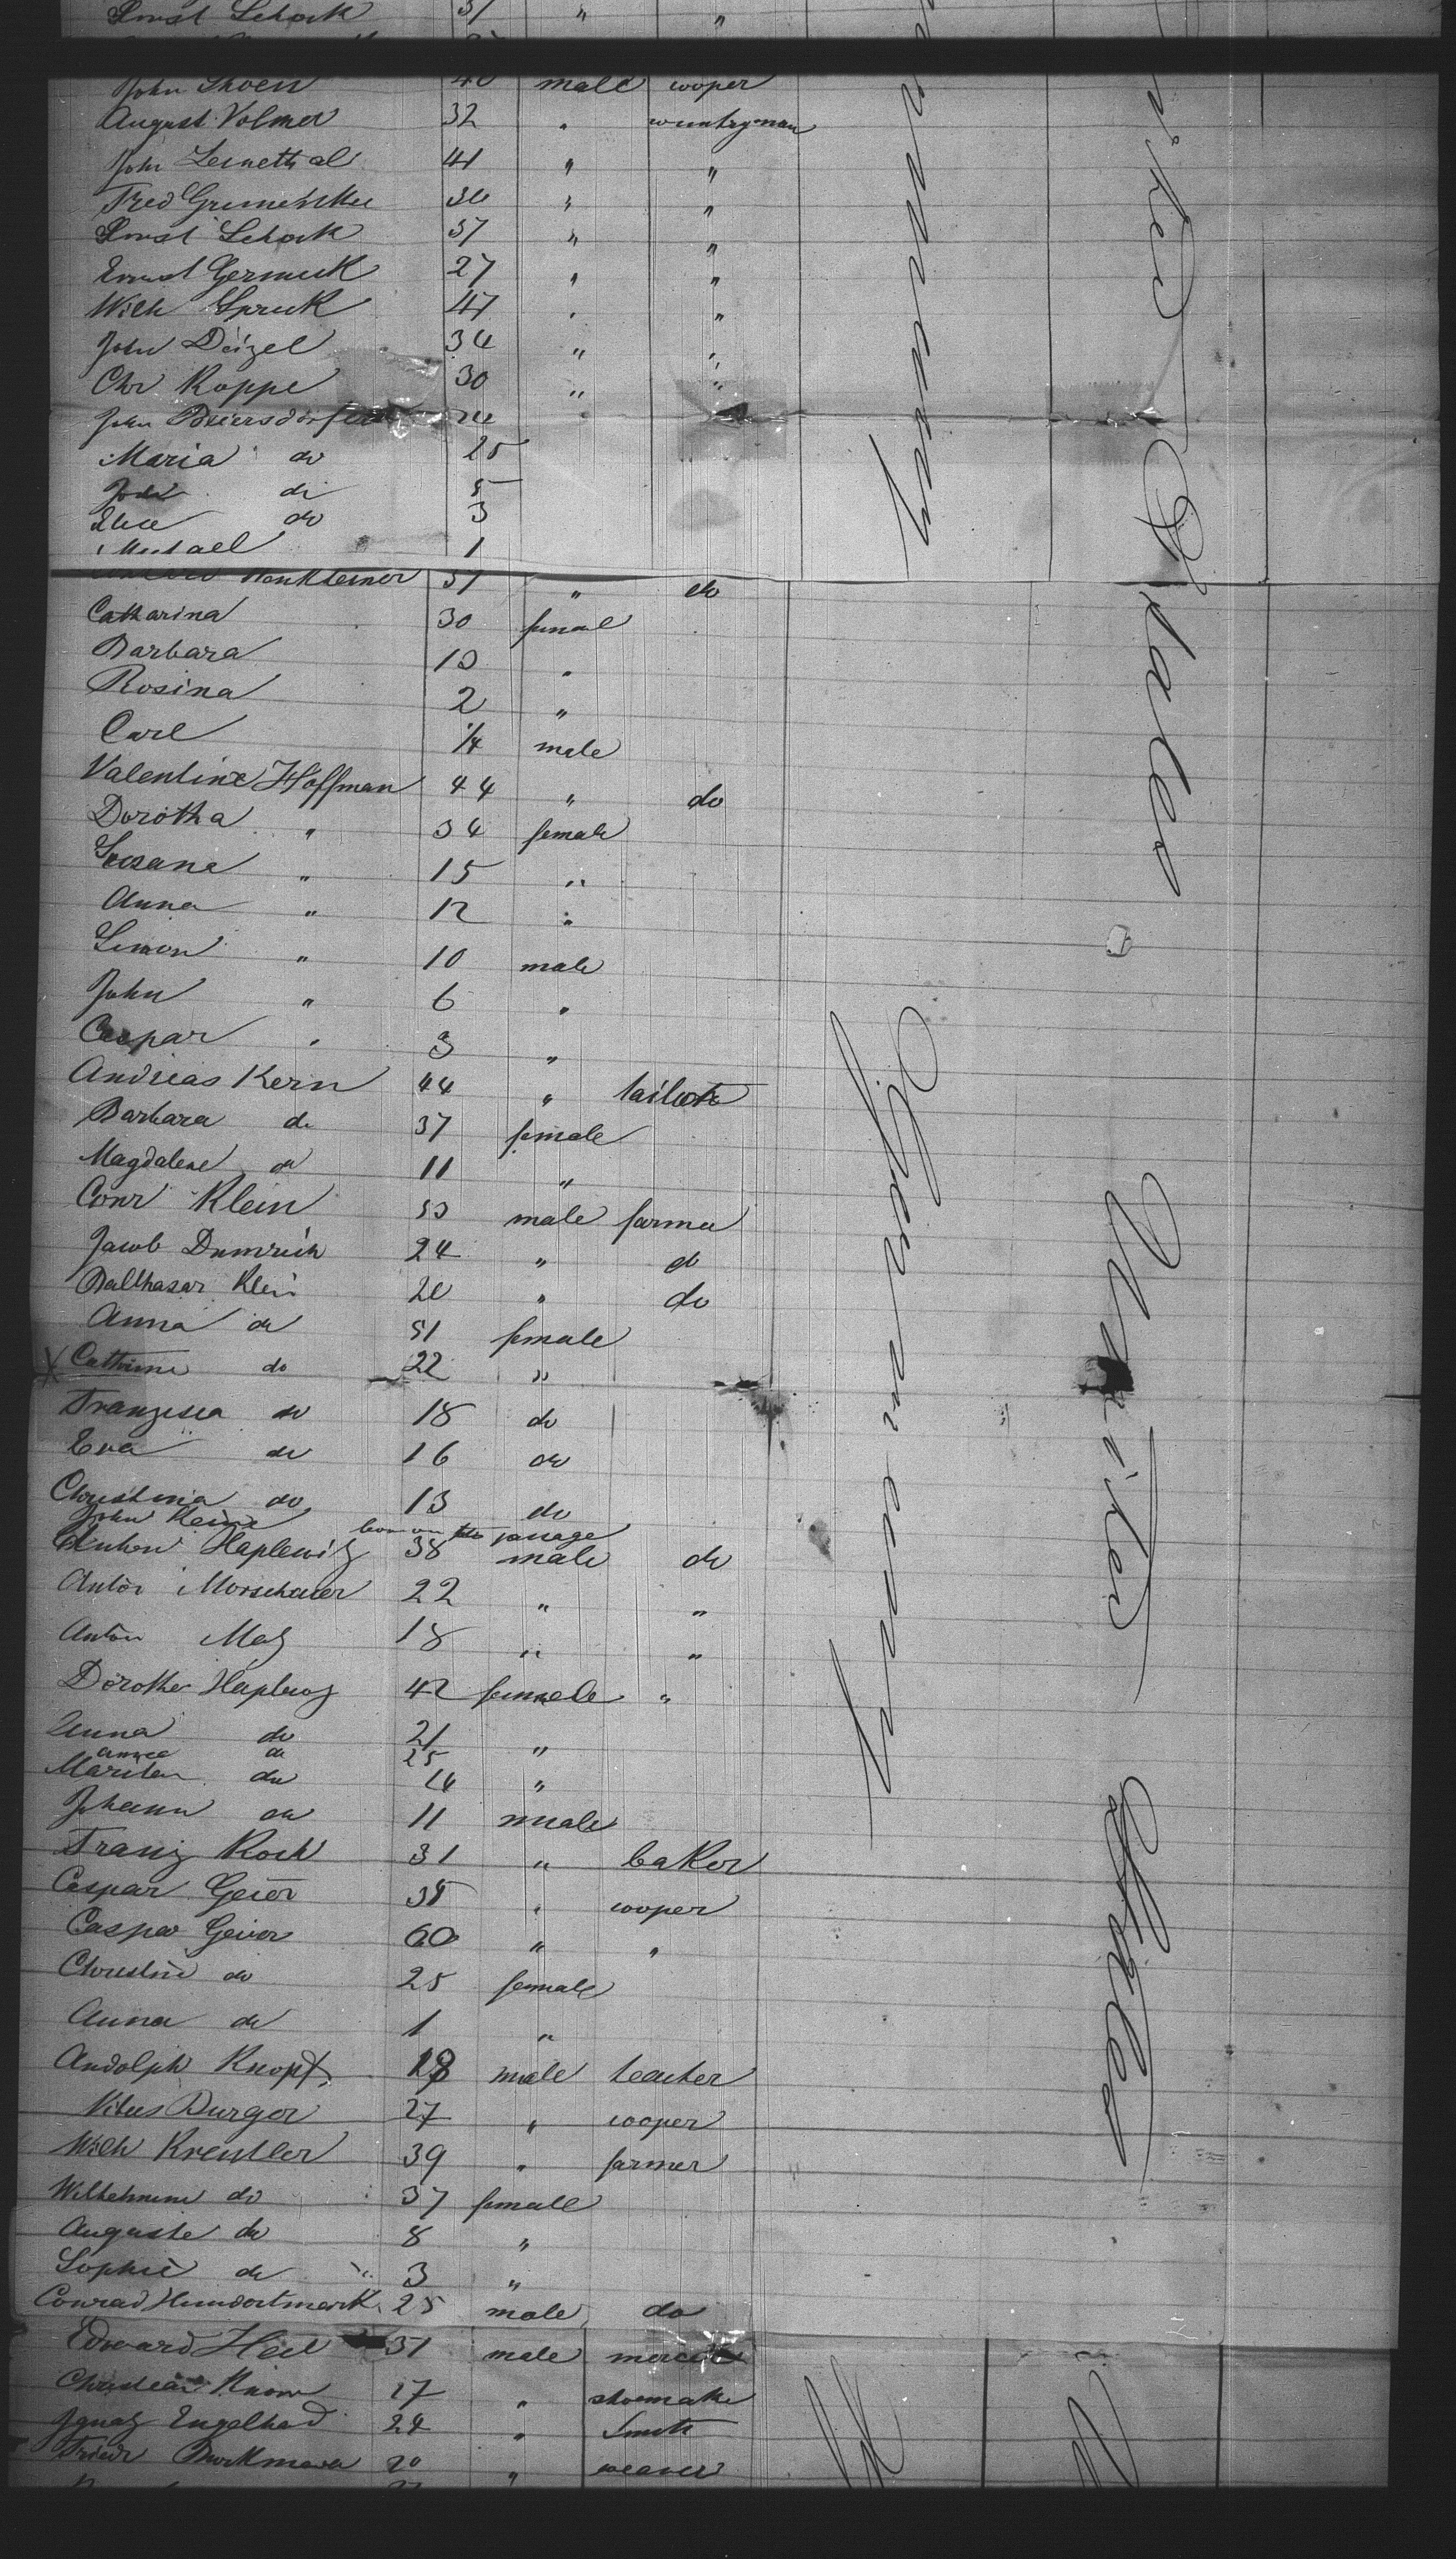 Ernst Schork 37 " "
John Thoen 40 male cooper
August Volmer 32 " countryman
John 41 " "
Fred 36 " "
Ernst Schork 37 " "
Ernst Germuk 27 " "
Wilh Spruk 47 " "
John Deizel 34 " "
Chr Koppe 30 " "
John Beiersdorfer 24
Maria do 25
John do 5
Elise do 3
Michael 1
Henkleiner 31 " do
Catharina 30 femal
Barbara 10 "
Rosina 2 "
Carl 1/4 male
Valentine Hoffman 44 " do
Dorotha " 34 female
Susana " 15 "
Anna " 12 "
Simon " 10 male
John " 6 "
Caspar " 3 "
Andreas Kern 44 " tailor
Barbara do 37 female
Magdalene do 11 "
Conr Klein 50 male farmer
Jacob Dumrich 24 " do
Balthasar Klein 20 " do
Anna do 51 female
X Cathrine do 22 "
Franzisca do 18 do
Eva do 16 do
Christina do 13 do
John Klein born on the passage
Anton Haplewitz 38 male do
Anton Morschauer 22 " "
Anton May 18 " "
Dorothe Haplewitz 42 female "
Anna do 21 "
Anna do 25
do 14 "
Johann do 11 male
Franz Koch 31 " baker
Caspar Geier 38 " cooper
Caspar Geier 60 " "
Christine do 25 female
Anna do 1 "
Andolph Knopf 28 male teacher
Vitus Burger 27 " cooper
Wilh Kreutler 39 " farmer
Wilhelmine do 37 female
Auguste do 8 "
Sophie do 3 "
Conrad Hundortmark 25 male do
Edward Heil 31 male
Christian Knorr 17 " shoemaker
Ignatz Engelhard 24 " Smith
Friedr 20 " weaver
Germany
Germany
United States
United States